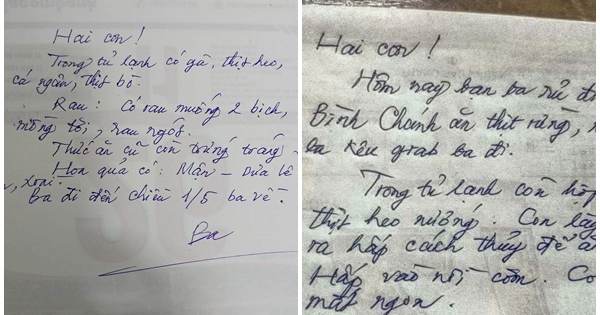 Hai con!
Trong tủ lạnh có gà, thịt heo,
cá ngân, thịt bò.
Rau: Có rau muống 2 bịch,
mồng tơi, rau ngót.
Thức ăn cũ còn trứng tráng
Hoa quả có: Mận - Dưa lê
, xoài.
Ba đi đến chiều 1/5 ba về.
Ba
Hai con!
Hôm nay bạn ba rủ đi
Bình Chánh ăn thịt rừng,
ba kêu grab ba đi.
Trong tủ lạnh còn hộp
thịt heo nướng. Con lấy
ra hấp cách thủy để ă
Hấp vào nồi cơm. Co
mất ngon.